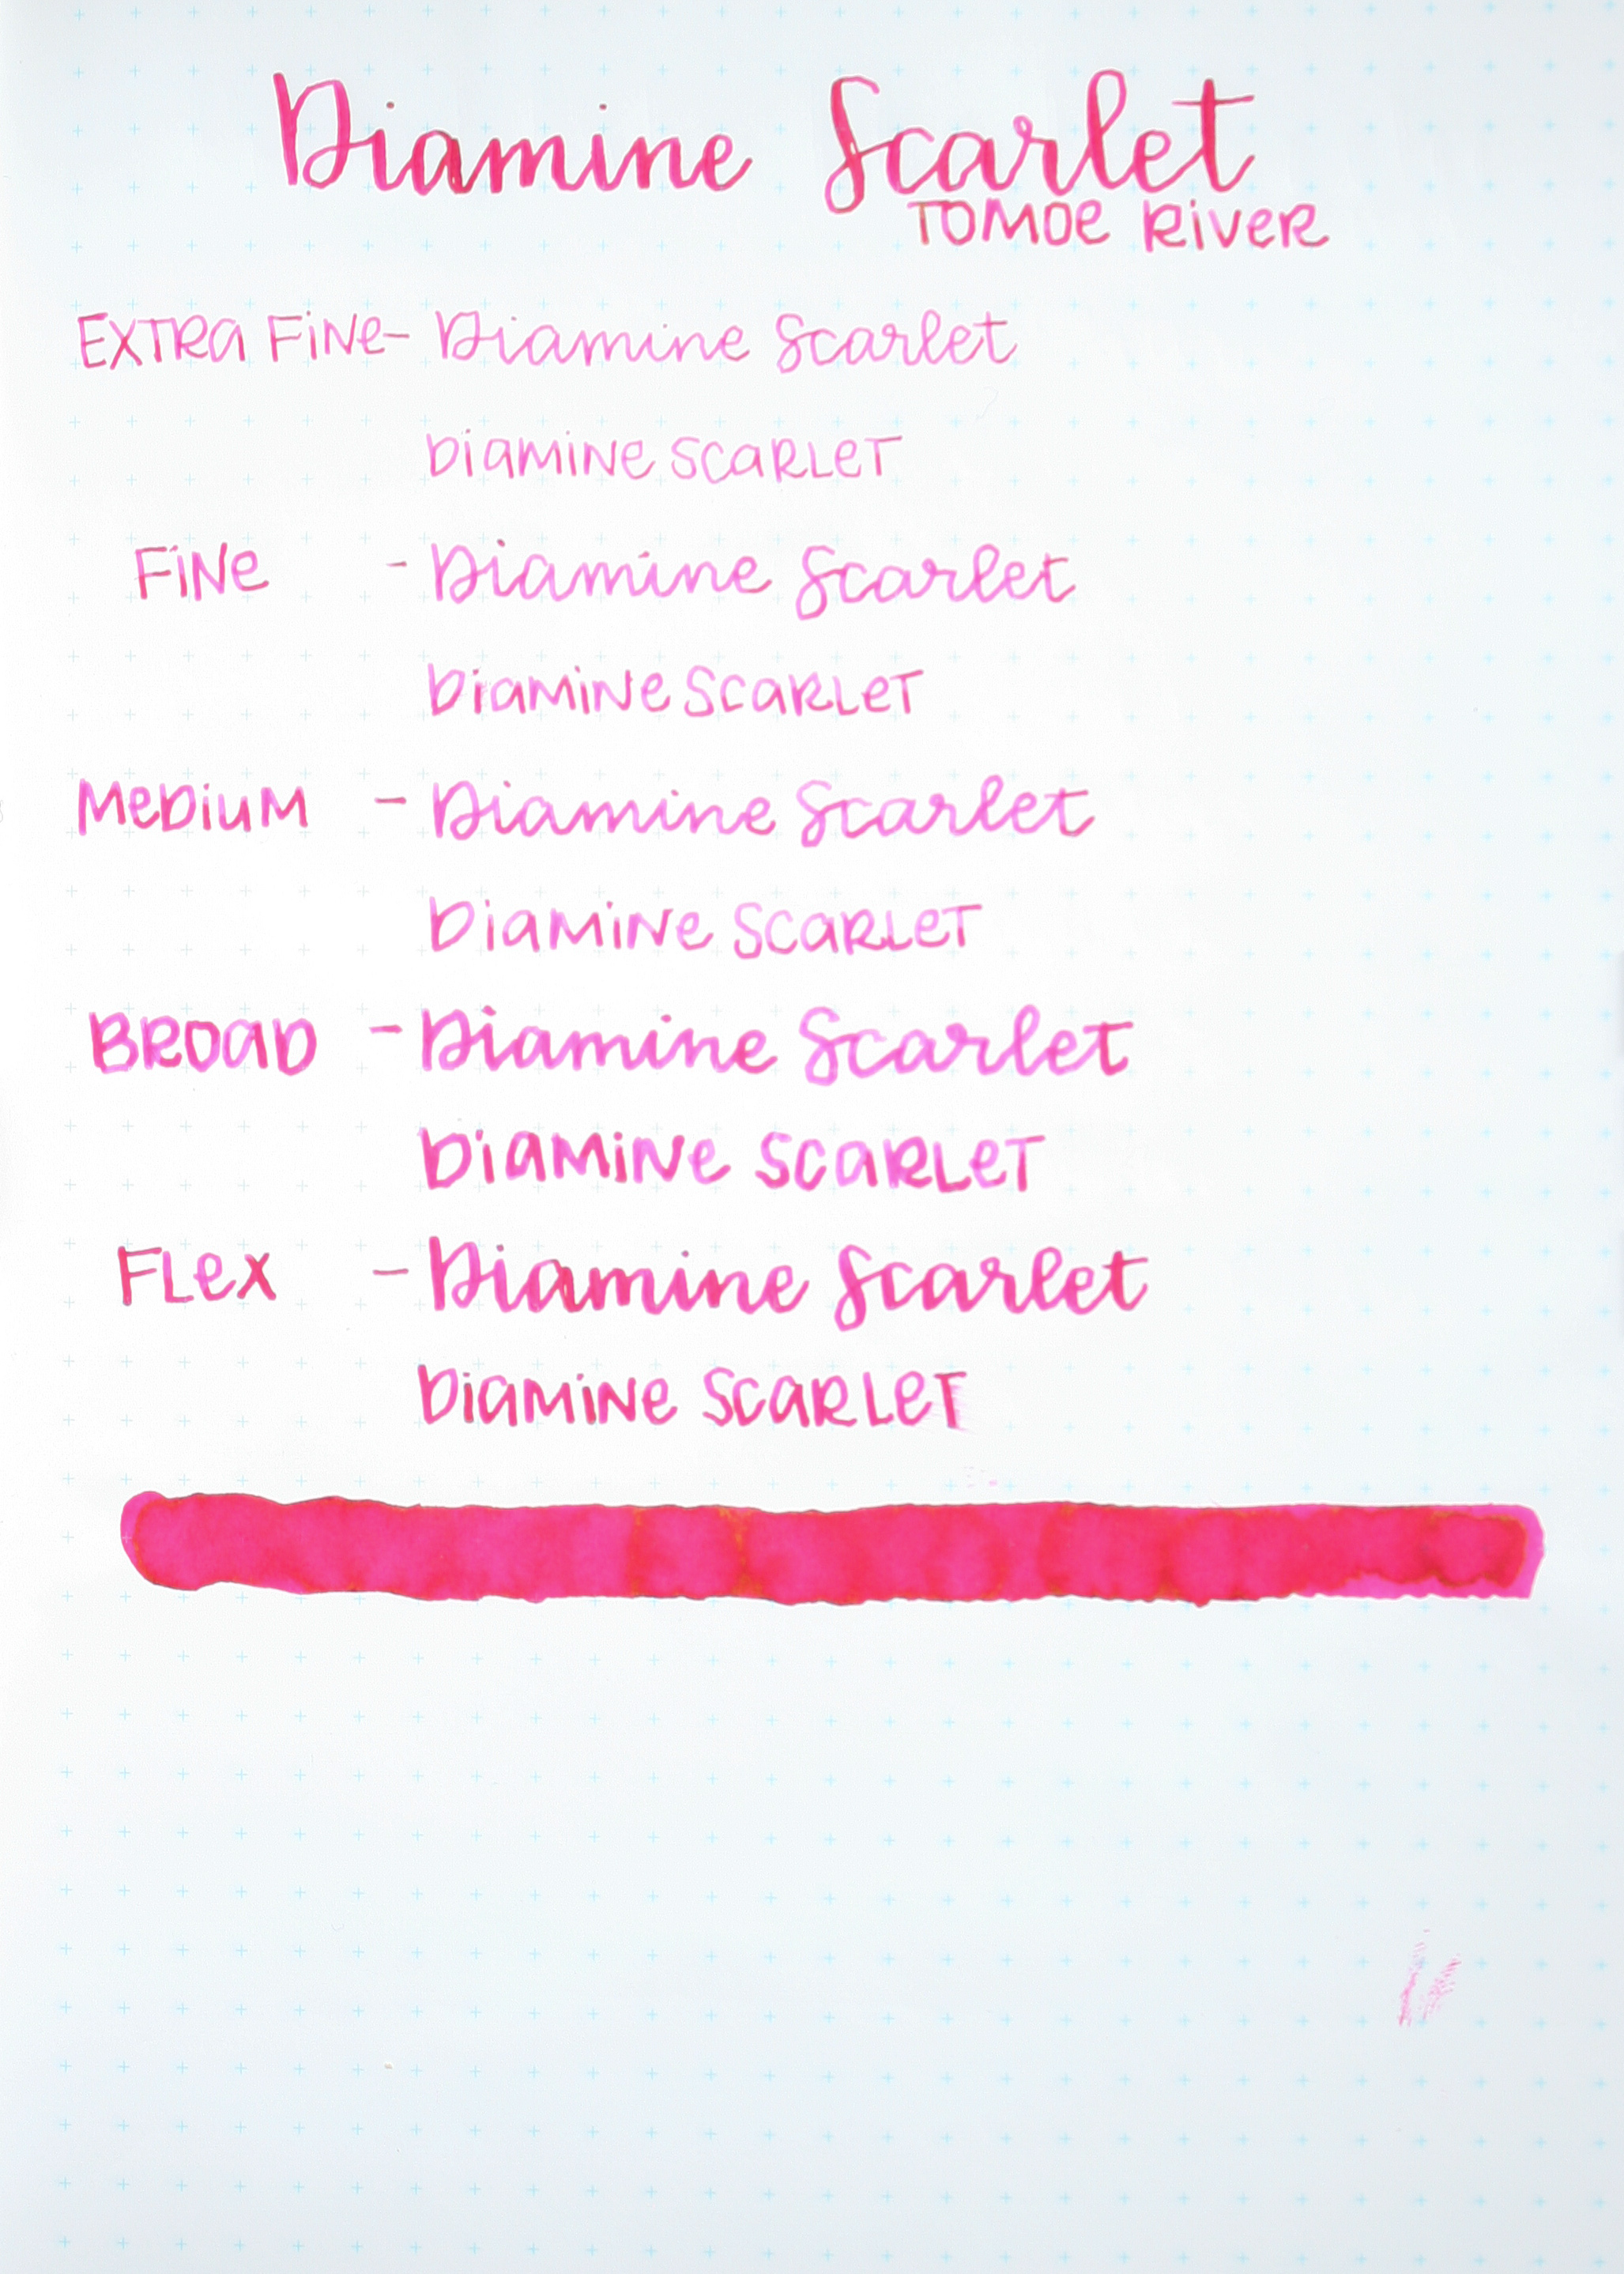 Diamine Scarlet
TOMOE RiVER
EXTRa FiNe- Diamine Scarlet
DiaMiNe SCaRLeT
FiNe - Diamine Scarlet
DiaMiNe SCaRLeT
MeDiuM - Diamine Scarlet
DiaMiNe SCaRLeT
BROaD - Diamine Scarlet
DiaMiNe SCaRLeT
FLex - Diamine Scarlet
DiaMiNe SCaRLeT